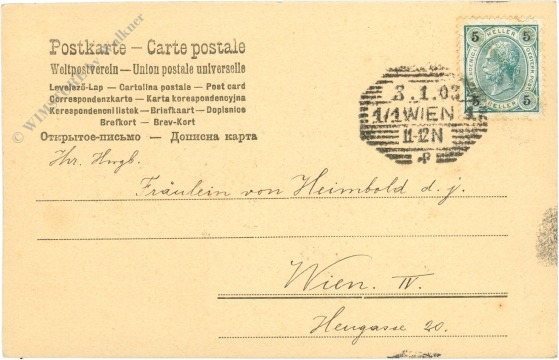 Postkarte – Carte postale
Weltpostverein – Union postale universelle
Levelező-Lap – Cartolina postale – Post card
Correspondenzkarte – Karta korespondencyjna
Korespondencní lístek – Briefkaart – Dopisnice
Brefkort – Brev-Kort
Открытое-письмо – Дописна карта
5 HELLER 5
5 HELLER 5
3.1.03
1/1 WIEN 1
11-12N
Hr. Hwgb.
Fräulein von Heimbold d. j.
Wien. IV.
Heugasse 20.